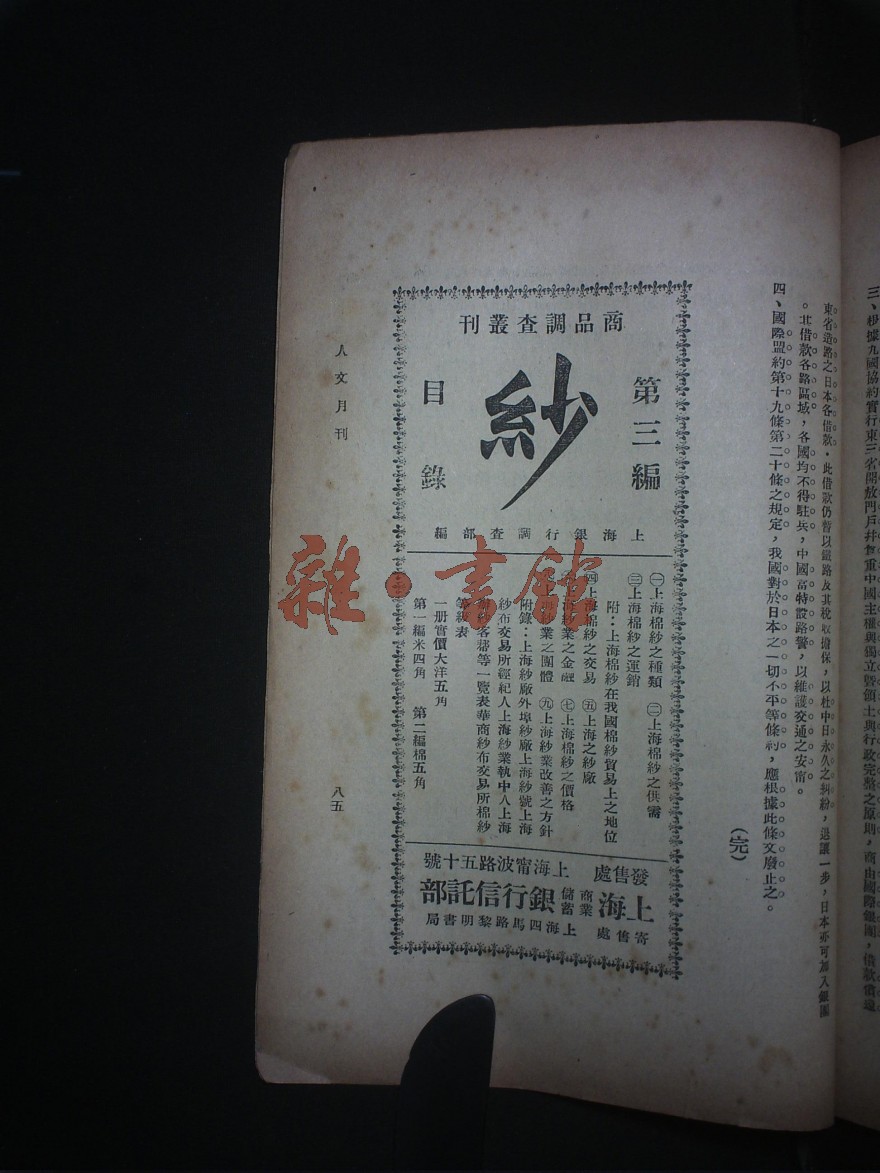 三、根據九國協約實行東三省開放門戶幷尊重中國主權與獨立暨領土與行政完整之原則，商由國際銀團，借款
東省造路之日本各借款，此借款仍暫以鐵路及其稅收擔保，以杜中日永久之糾紛，退讓一步，日本亦可加入銀團
。其借款各路區域，各國均不得駐兵，中國當特設路警，以維護交通之安甯。
四、國際盟約第十九條第二十條之規定，我國對於日本之一切不平等條約，應根據此條文廢止之。
（完）
商品調查叢刊
第三編
紗
目錄
上海銀行調查部編
㊀上海棉紗之種類　㊁上海棉紗之供需
㊂上海棉紗之運銷
附：上海棉紗在我國棉紗貿易上之地位
㊃上海棉紗之交易　㊄上海之紗廠
海紗業之金融　㊆上海棉紗之價格
上海紗業之團體　㊈上海紗業改善之方針
附錄：上海紗廠外埠紗廠上海紗號上海
紗布交易所經紀人上海紗業執中人上海
紗客幫等一覽表華商紗布交易所棉紗
等級表
一册實價大洋五角
第一編米四角　第二編棉五角
發售處　上海甯波路五十號
上海商業儲蓄銀行信託部
寄售處　上海四馬路黎明書局
人文月刊
八五
雜·書館